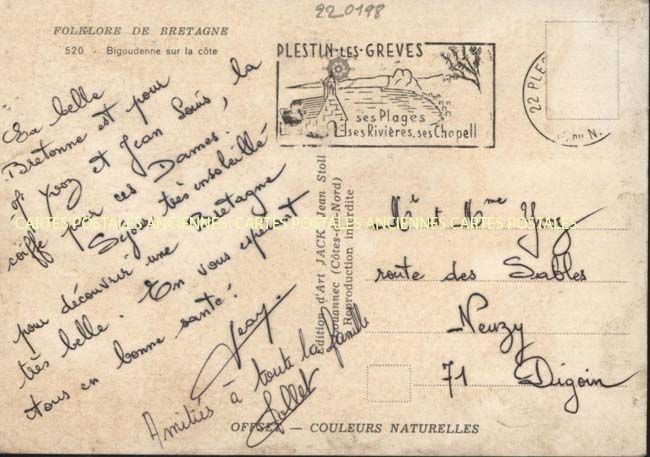 22 0198
FOLKLORE DE BRETAGNE
520 - Bigoudenne sur la côte
La belle
Bretonne est pour
Yvon et Jean Louis, la
coiffe pour ces Dames.
Séjour très ensoleillé
pour découvrir une Bretagne
très belle. En vous espérant
tous en bonne santé.
Amitiés à toute la famille
PLESTIN-LES-GREVES
ses Plages
ses Rivières, ses Chapell
22 PLES
DU N.
Edition d'Art JACK, Jean Stoll
Louannec (Côtes-du-Nord)
Reproduction interdite
Mr et Mme
route des Sables
Neuzy
71 Digoin
CARTES POSTALES ANCIENNES CARTES POSTALES ANCIENNES CARTES POSTALES ANCIENNES
OFFSET — COULEURS NATURELLES